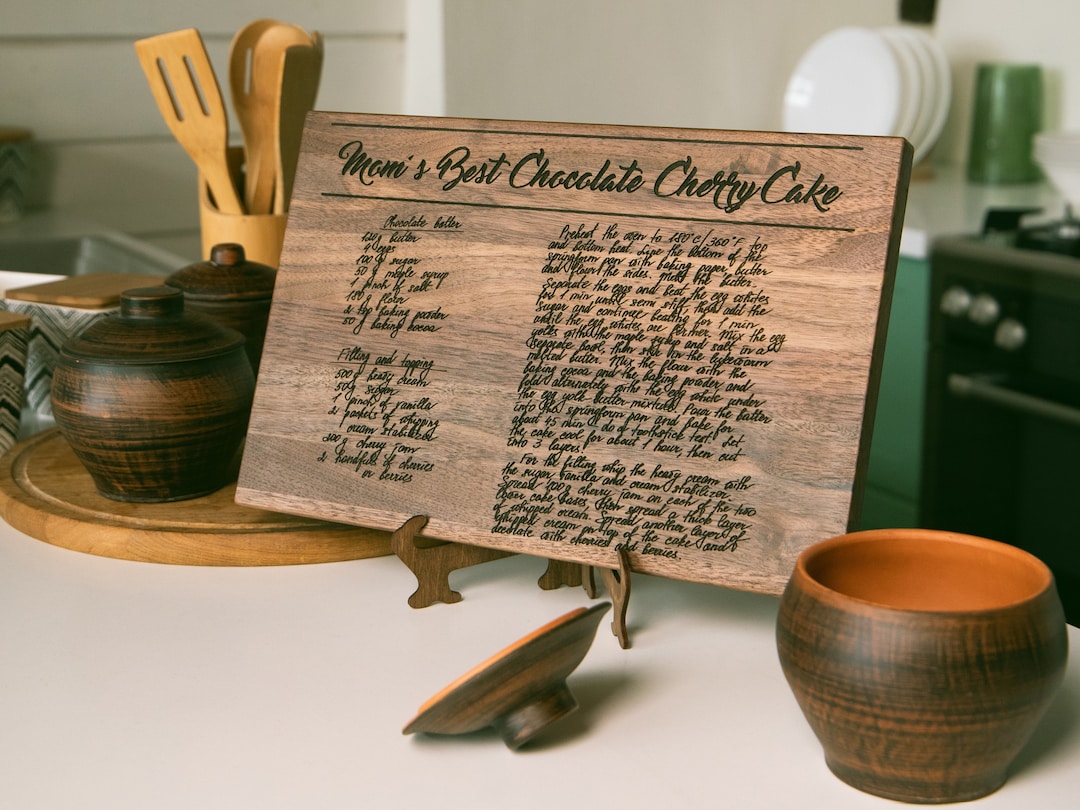 Mom's Best Chocolate Cherry Cake
Chocolate batter
120 g butter
4 eggs
100 g sugar
50 g maple syrup
1 pinch of salt
180 g flour
2 tsp baking powder
50 g baking cocoa
Filling and topping
500 g heavy cream
50 g sugar
1 pinch of vanilla
2 packets of whipping
cream stabilized
200 g cherry jam
2 handfuls of cherries
or berries
Preheat the oven to 180°C/360°F top
and bottom heat. Line the bottom of the
springform pan with baking paper, butter
and flour the sides. Melt the butter.
Separate the eggs and beat the egg whites
for 1 min until semi stiff, then add the
sugar and continue beating for 1 min
until the egg whites are firmer. Mix the egg
yolks with the maple syrup and salt in a
separate bowl, then stir in the lukewarm
melted butter. Mix the flour with the
baking cocoa and the baking powder and
fold alternately with the egg white under
the egg yolk-butter mixture. Pour the batter
into the springform pan and bake for
about 45 min - do a toothstick test. Let
the cake cool for about 1 hour, then cut
into 3 layers.
For the filling whip the heavy cream with
the sugar, vanilla and cream stabilizer.
Spread 100 g cherry jam on each of the two
lower cake bases, then spread a thick layer
of whipped cream. Spread another layer of
whipped cream on top of the cake and
decorate with cherries and berries.